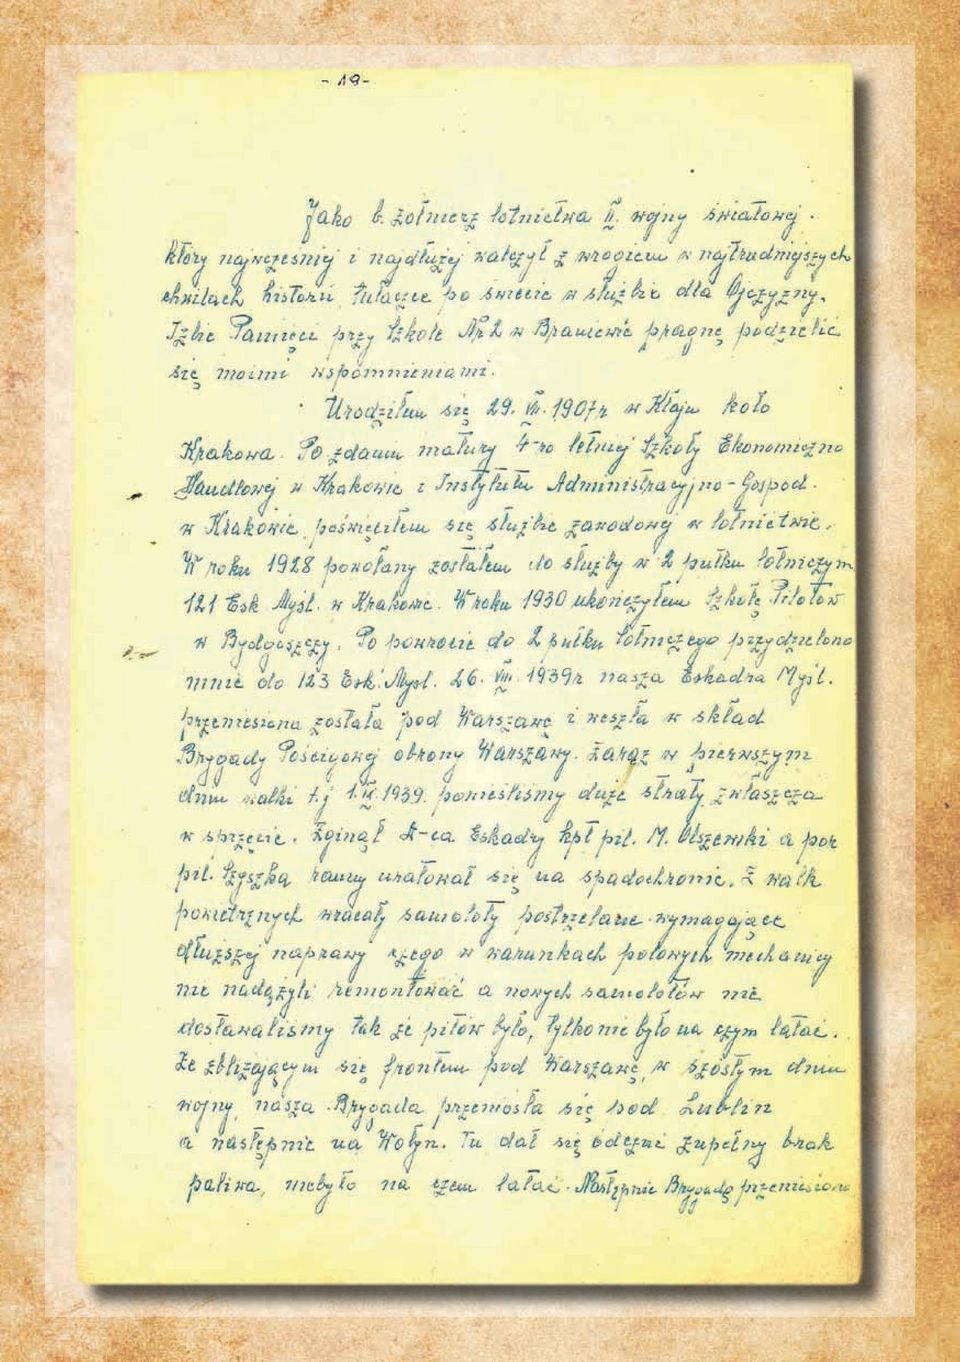 - 19 -
Jako b. żołnierz lotnictwa II. wojny światowej.
który najwcześniej i najdłużej walczył z wrogiem w najtrudniejszych
chwilach historii, tułacze po świecie w służbie dla Ojczyzny.
Izbie Pamięci przy Szkole Nr 2 w Braniewie pragnę podzielić
się moimi wspomnieniami.
Urodziłem się 29. VII. 1907r w Kłaju koło
Krakowa. Po zdaniu matury 4-ro letniej Szkoły Ekonomiczno
Handlowej w Krakowie i Instytutu Administracyjno-Gospod.
w Krakowie, poświęciłem się służbie zawodowej w lotnictwie.
W roku 1928 powołany zostałem do służby w 2 pułku lotniczym
121 Esk Myśl. w Krakowie. W roku 1930 ukończyłem Szkołę Pilotów
w Bydgoszczy. Po powrocie do 2 pułku lotniczego przydzielono
mnie do 123 Esk. Mysl. 26. VIII. 1939r nasza Eskadra Myśl.
przeniesiona została pod Warszawę i weszła w skład
Brygady Pościgowej obrony Warszawy. Zaraz w pierwszym
dniu walki t.j 1.IX.1939. ponieśliśmy duże straty zwłaszcza
w sprzęcie. Zginął D-ca Eskadry kpt pil. M. Olszewski a por
pil. Szyszka ranny uratował się na spadochronie. Z walk
powietrznych wracały samoloty postrzelane wymagające
dłuższej naprawy czego w warunkach polowych mechanicy
nie nadążyli remontować a nowych samolotów nie
dostawaliśmy tak że pilów było, tylko nie było na czym latać.
Ze zbliżającym się frontem pod Warszawę, w szóstym dniu
wojny, nasza Brygada przeniosła się pod Lublin
a następnie na Wołyn. Tu dał się odczuć zupełny brak
paliwa, niebyło na czem latać. Następnie Brygadę przeniesiono